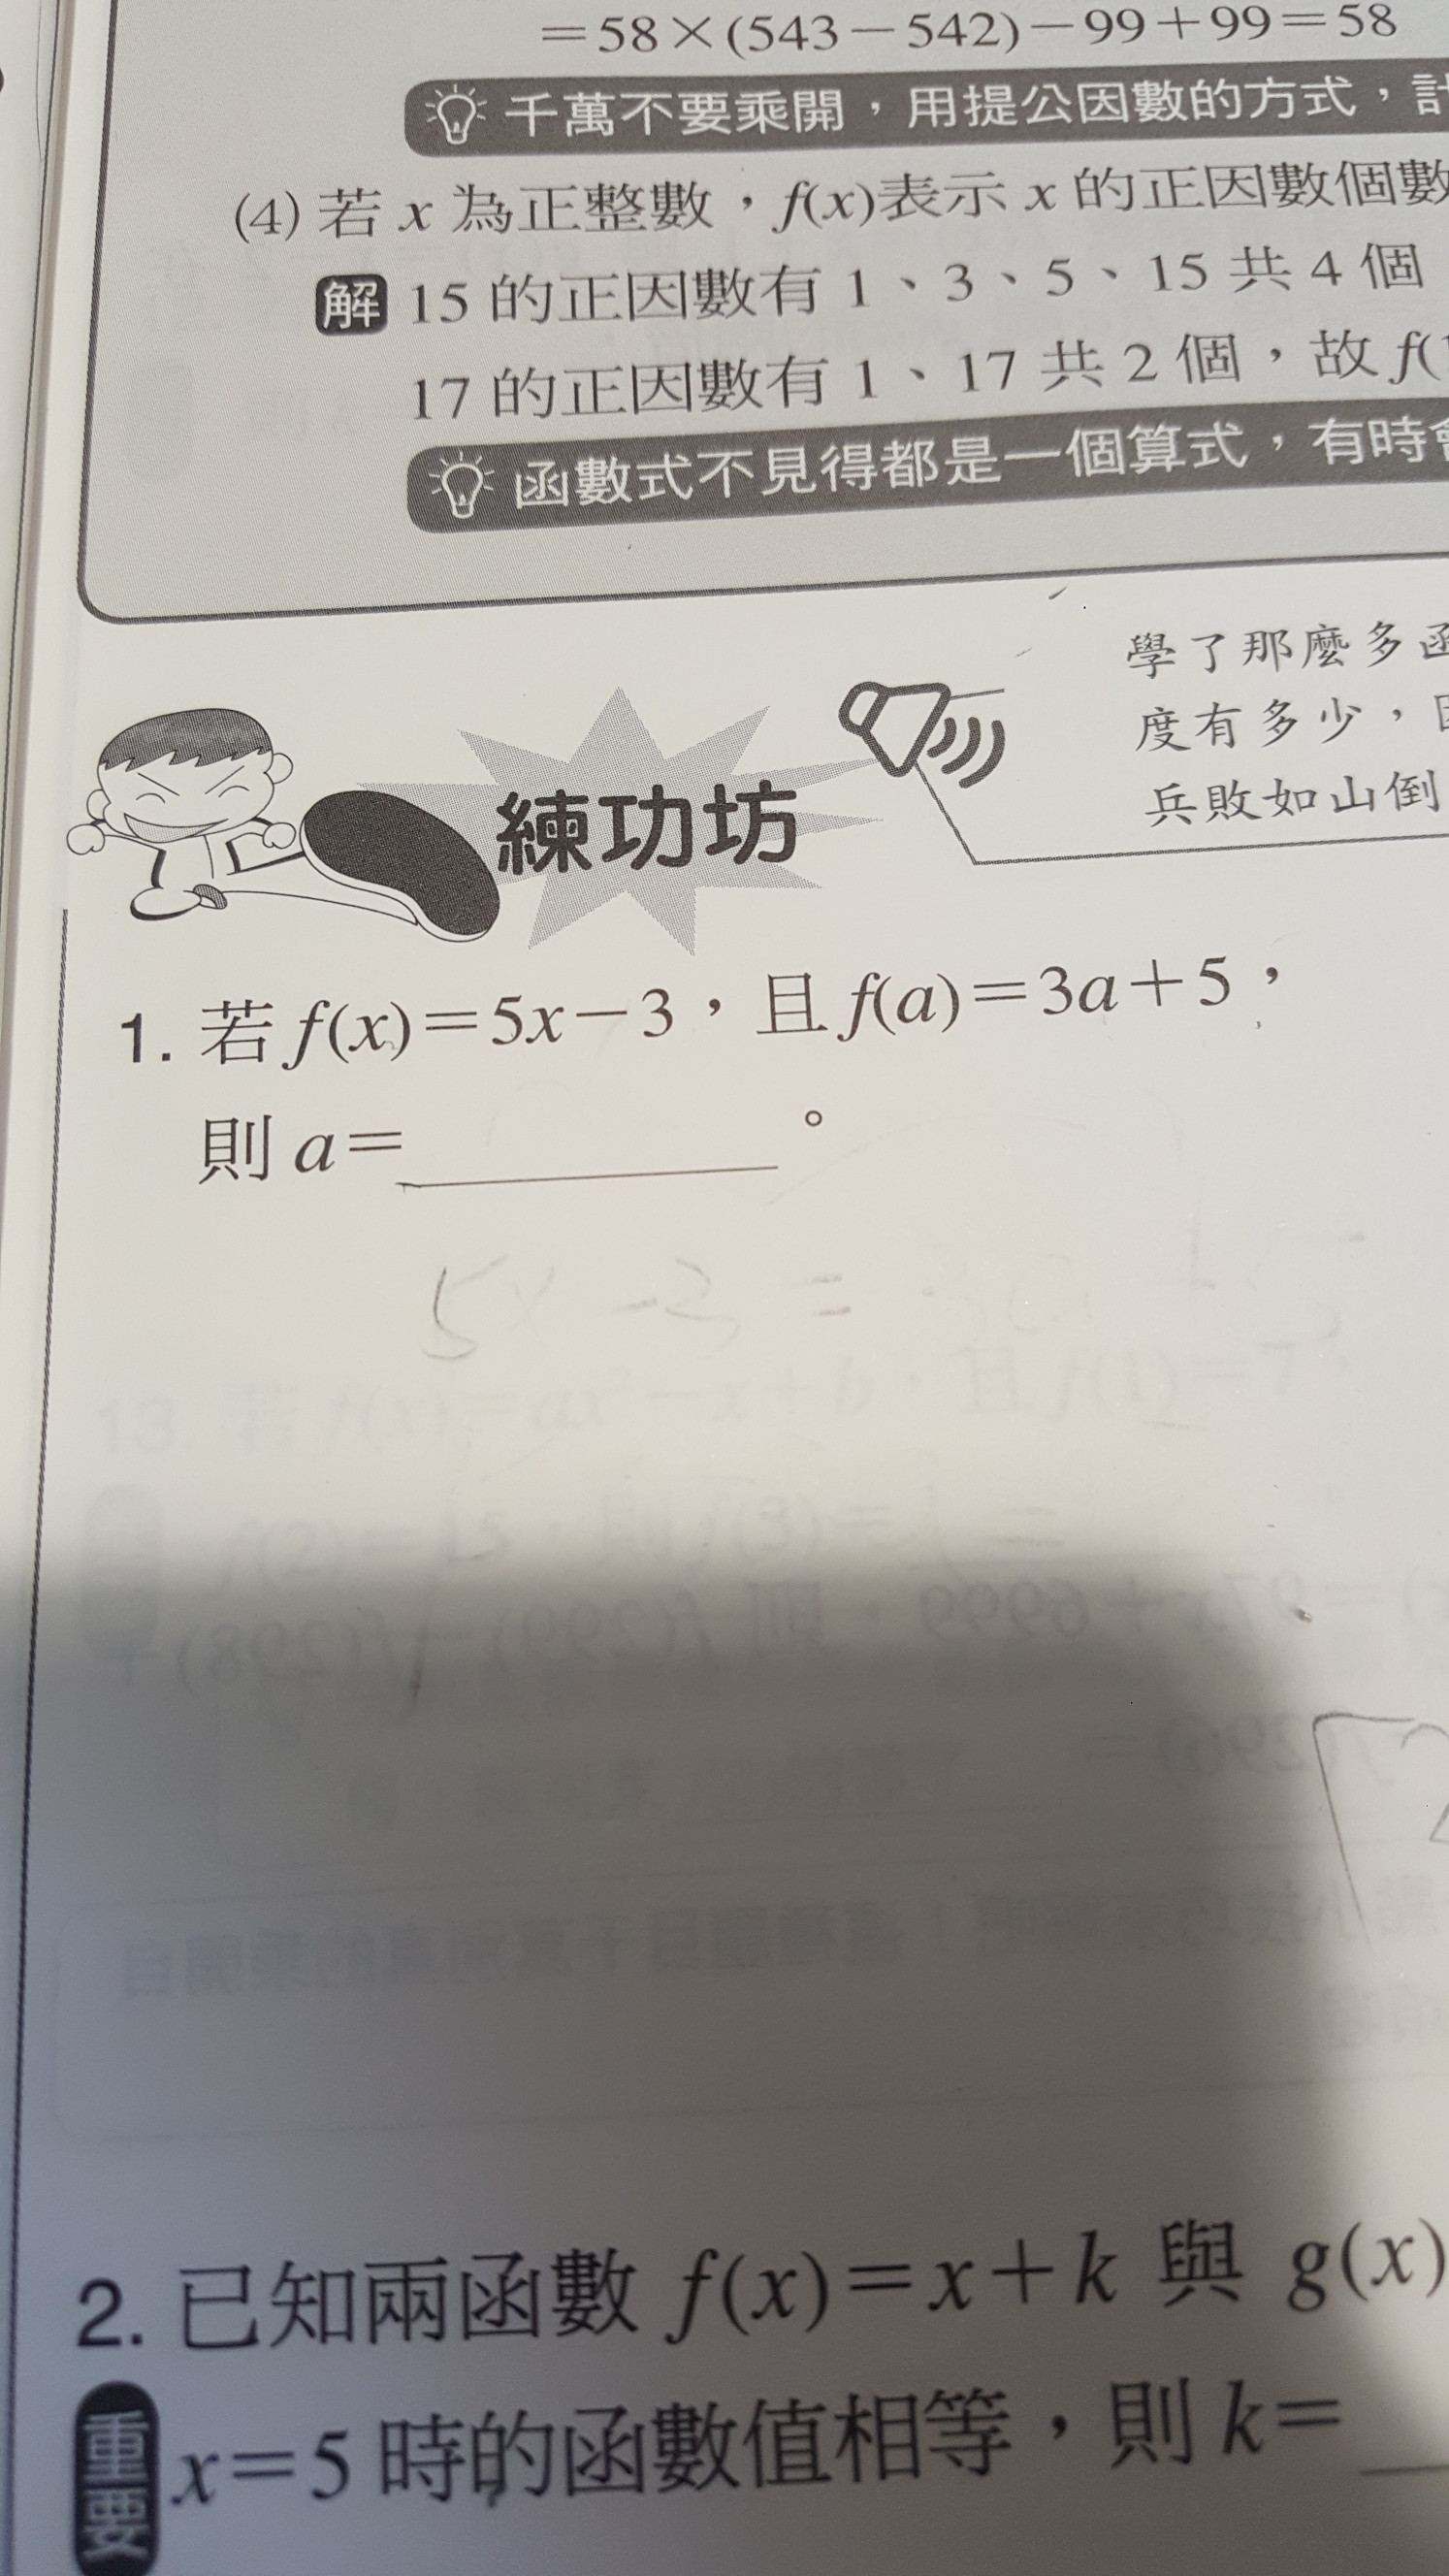 =58×(543-542)-99+99=58
千萬不要乘開，用提公因數的方式，
(4) 若 x 為正整數，f(x)表示 x 的正因數個數
解 15 的正因數有 1、3、5、15 共 4 個
17 的正因數有 1、17 共 2 個，故 f(
函數式不見得都是一個算式，有時
學了那麼多
度有多少，
兵敗如山倒
練功坊
1. 若 f(x)=5x-3，且 f(a)=3a+5，
則 a=________。
5x -3 =
2. 已知兩函數 f(x)=x+k 與 g(x)
重要 x=5 時的函數值相等，則 k=